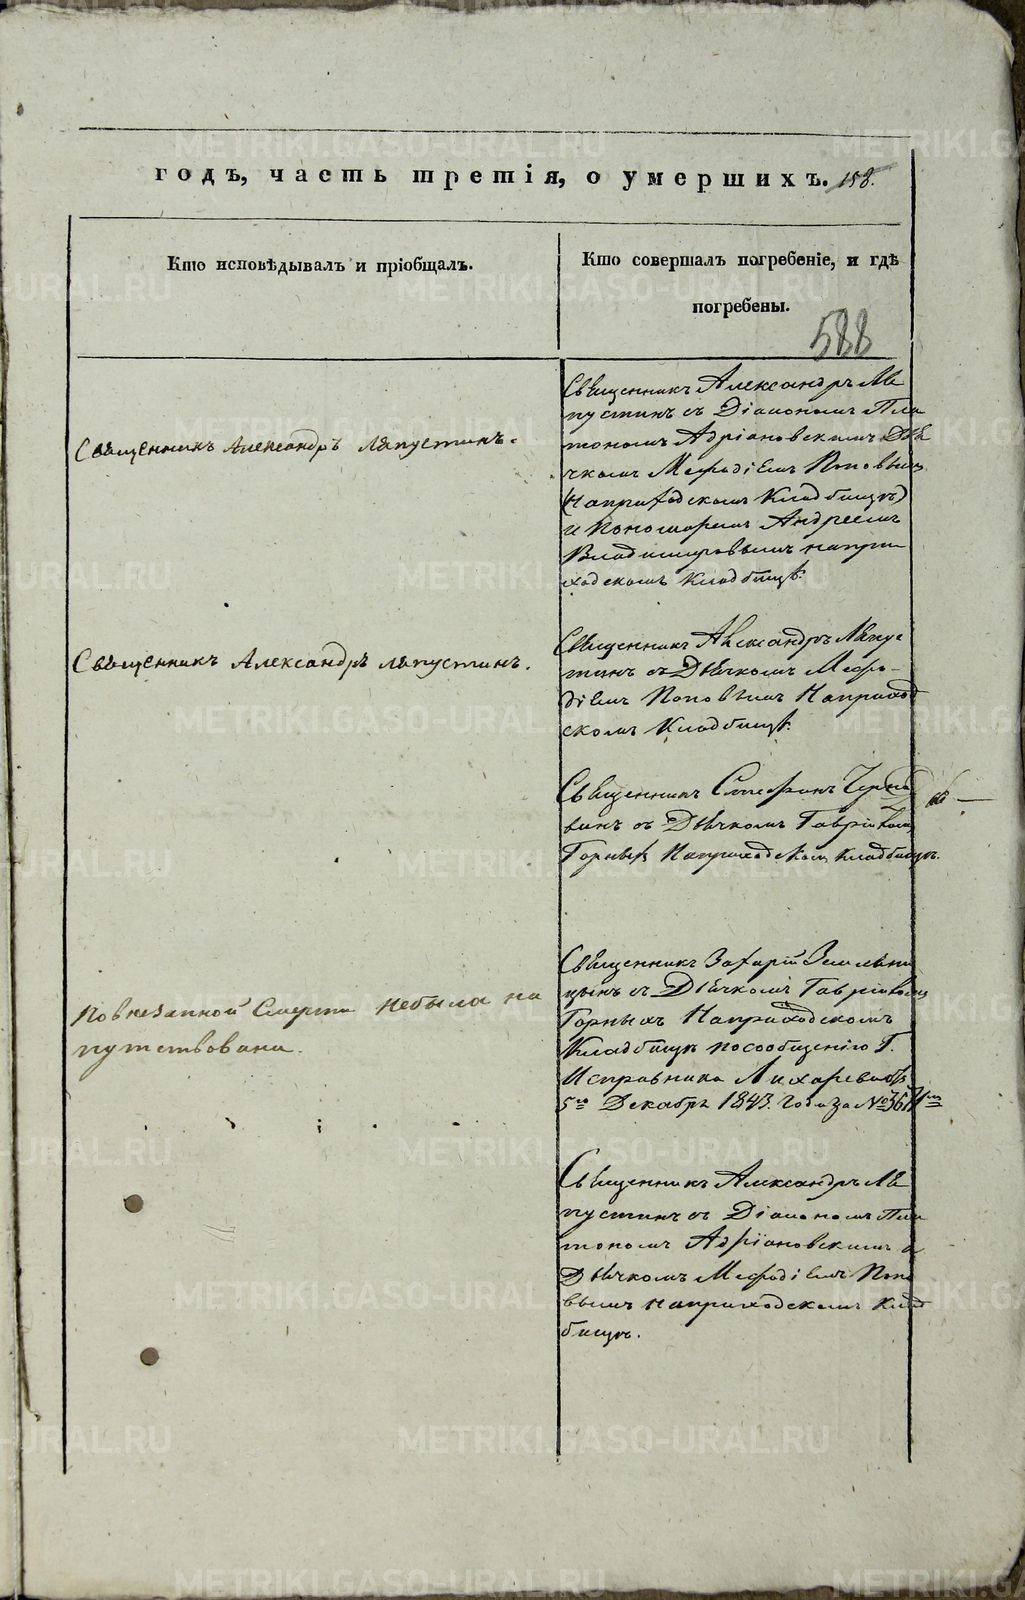 годъ, часть третія, о умершихъ. 158.
Кто исповѣдывалъ и пріобщалъ.
Кто совершалъ погребеніе, и гдѣ
погребены.
588
Священникъ Александръ Ляпустинъ.
Священникъ Александръ Ля
пустинъ съ Діакономъ Пла
тономъ Адріановскимъ Дья
чкомъ Мефодіемъ Поповымъ
(На приходскомъ Кладбищѣ)
и Пономаремъ Андреемъ
Владимировымъ на при
ходскомъ Кладбищѣ.
Священникъ Александръ Ляпустинъ.
Священникъ Александръ Ляпус
тинъ съ Дьячкомъ Мефо-
діемъ Поповымъ На приход
скомъ Кладбищѣ.
Священникъ Стефанъ
винъ съ Дьячкомъ Гавріиломъ
Горныхъ На приходскомъ кладбищѣ.
По внезапной Смерти небыла на
путствована.
Священникъ Захарій Земляни
цынъ съ Дьячкомъ Гавріиломъ
Горныхъ На приходскомъ
Кладбищѣ по сообщенію Г.
Исправника Лихарева отъ
5го Декабря 1843. Года за №
Священникъ Александръ Ля
пустинъ съ Діакономъ Пла
тономъ Адріановскимъ и
Дьячкомъ Мефодіемъ Попо
вымъ на приходскомъ Клад
бищѣ.
METRIKI.GASO-URAL.RU